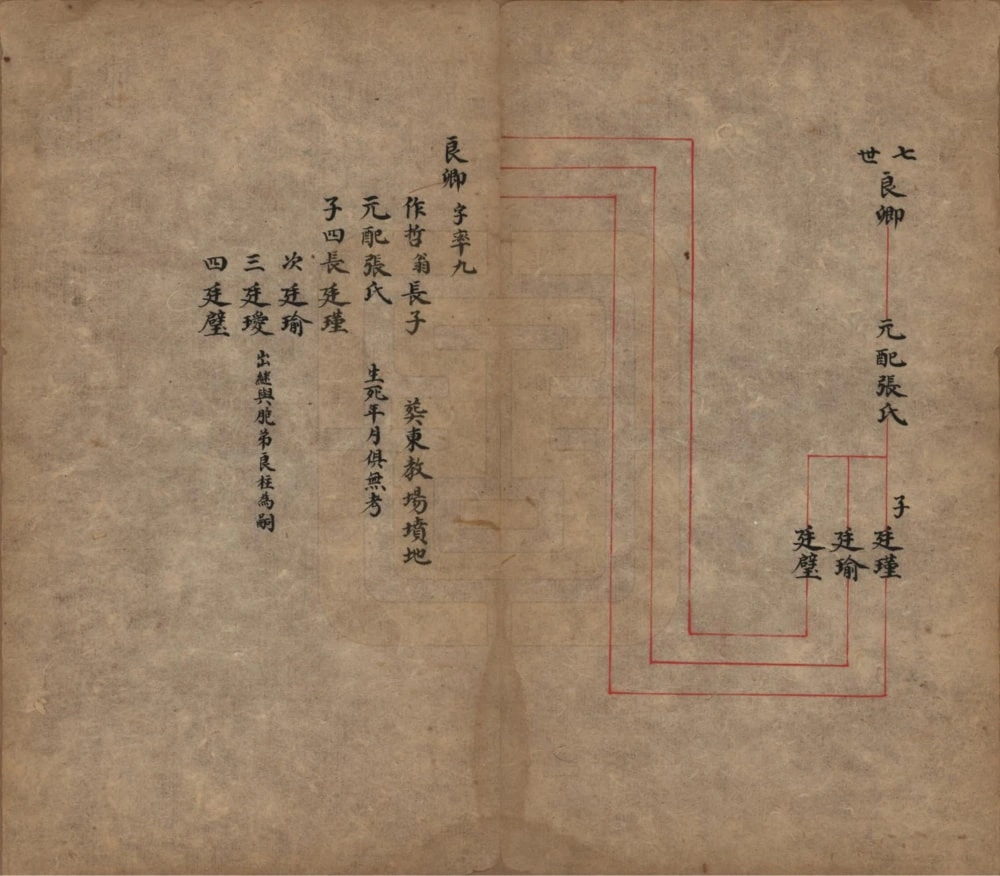 七世
良卿
元配張氏
子
廷瑾
廷瑜
廷璧
良卿 字率九
作哲翁長子 葬東教場墳地
元配張氏 生死年月俱無考
子四長廷瑾
次廷瑜
三廷瓊 出繼與胞弟良柱為嗣
四廷璧